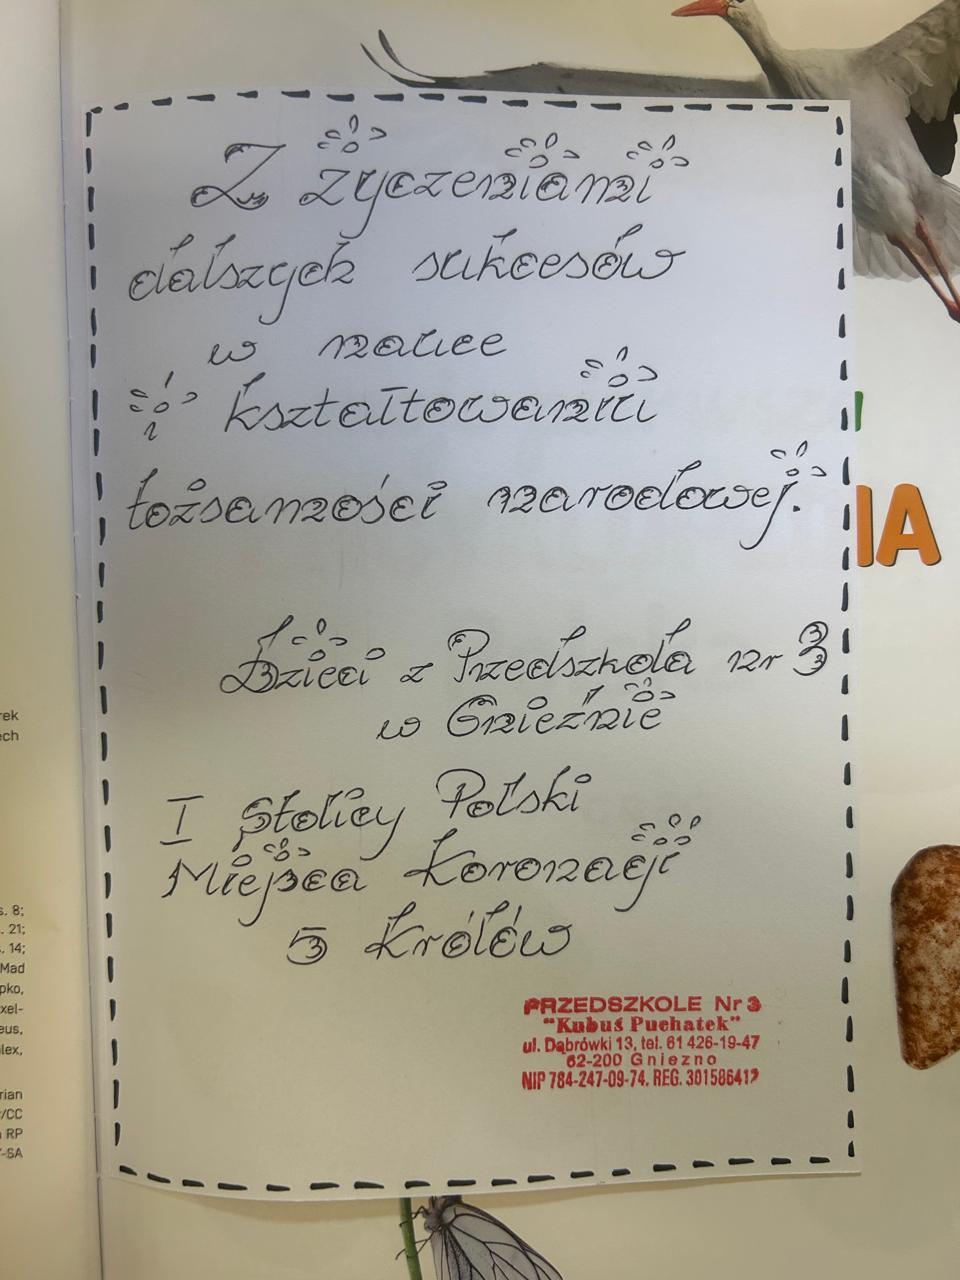 Z życzeniami
dalszych sukcesów
w nauce
i kształtowaniu
tożsamości narodowej.
Dzieci z Przedszkola nr 3
w Gnieźnie
I Stolicy Polski
Miejsca Koronacji
5 Królów
PRZEDSZKOLE Nr 3
"Kubuś Puchatek"
ul. Dąbrówki 13, tel. 61 426-19-47
62-200 Gniezno
NIP 784-247-09-74. REG. 301586412
IA
rek
ech
s. 8;
. 21;
. 14;
Mad
pko,
xel-
eus,
ilex,
rian
/CC
RP
-SA